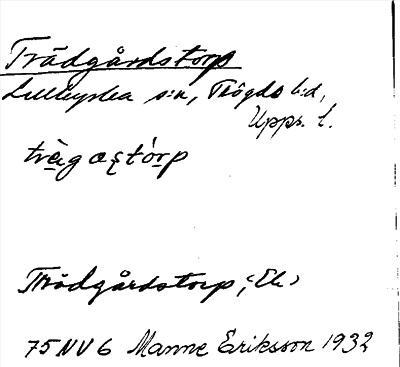 Trädgårdstorp
Lillkyrka s:n, Trögds h:d,
Upps. l.
trä̀gaʂtór̥p
Trädgårdstorp, (Ek)
75NV6 Manne Eriksson 1932